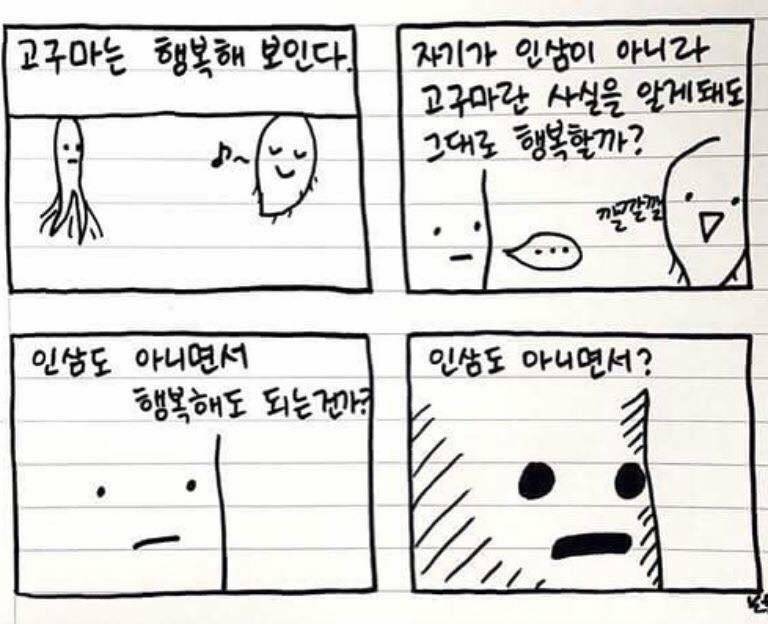 고구마는 행복해 보인다.
자기가 인삼이 아니라
고구마란 사실을 알게돼도
그대로 행복할까?
...
깔깔깔
인삼도 아니면서
행복해도 되는건가?
인삼도 아니면서?